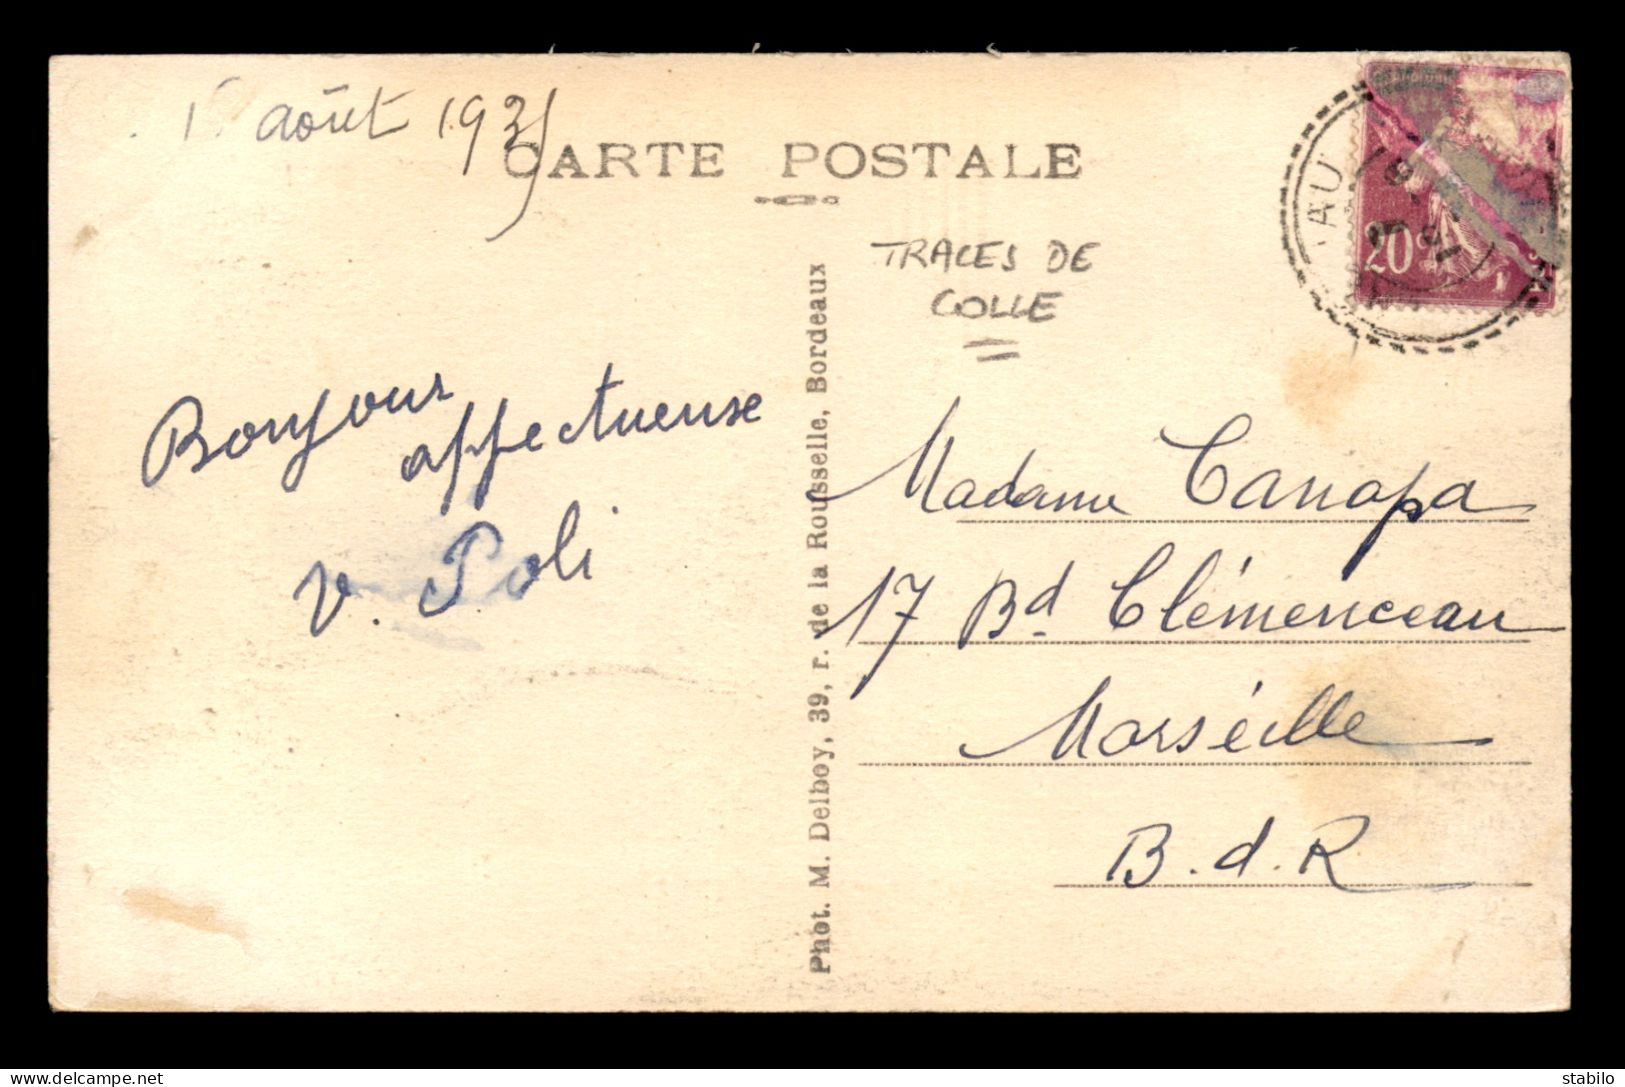 août 193
CARTE POSTALE
TRACES DE
COLLE
20c
AU
Bonjour
affectueuse
V. Poli
Phot. M. Delboy, 39, r. de la Rousselle, Bordeaux
Madame Canapa
17 Bd Clémenceau
Marséille
B. d. R
stabilo
delcampe.net